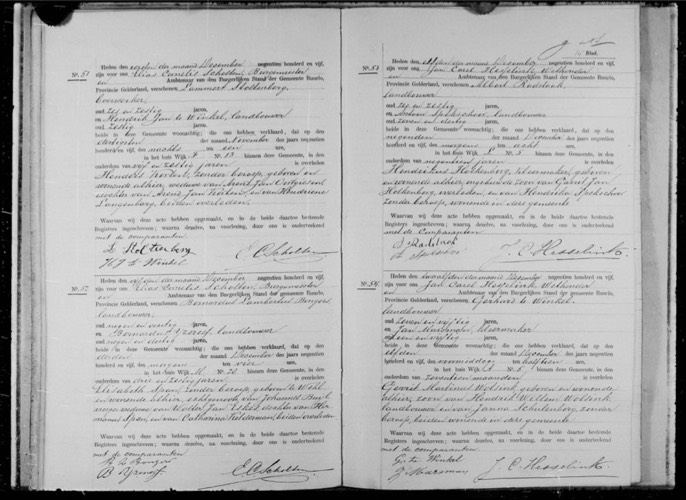 Nº. 51
Heden den eersten der maand December negentien honderd en vijf,
zijn voor ons Elias Cornelis Scholten, Burgemeester
en Ambtenaar van den Burgerlijken Stand der Gemeente Ruurlo,
Provincie Gelderland, verschenen Lammert Holtenberg,
oud zes en zestig jaren,
en Hendrik Jan te Winkel, landbouwer
oud zestig jaren,
beide in deze Gemeente woonachtig; die ons hebben verklaard, dat op den
dertigsten der maand November des jaren negentien
honderd en vijf, des nachts ten een ure,
in het huis Wijk Nº. 13 binnen deze Gemeente, is overleden
oud vijf en zestig jaren
zonder beroep, geboren en
wonende alhier, weduwe van Arend Jan
dochter van en van Hendriene
Langenberg, beiden overleden.
Waarvan wij deze acte hebben opgemaakt, en in de beide daartoe bestemde
Registers ingeschreven; waarna dezelve, na duidelijke voorlezing, is onderteekend
met de comparanten.
L Holtenberg
H J te Winkel
E C Scholten
Nº. 52
Heden den der maand December negentien honderd en vijf,
zijn voor ons Elias Cornelis Scholten, Burgemeester
en Ambtenaar van den Burgerlijken Stand der Gemeente Ruurlo,
Provincie Gelderland, verschenen Bernardus Lambertus Bongers
landbouwer
oud negen en veertig jaren,
en Bernardus landbouwer
oud negen en dertig jaren,
beide in deze Gemeente woonachtig; die ons hebben verklaard, dat op den
derden der maand December des jaren negentien
honderd en vijf, des morgens ten vier ure,
in het huis Wijk Nº. 20 binnen deze Gemeente, is overleden
oud drie en zestig jaren
Elisabeth Spaan, zonder beroep, geboren te Wehl
en wonende alhier, echtgenoote van Johannes
eerder weduwe van Wolter Jan dochter van Her
manus Spaan, en van Catharina beiden overleden
Waarvan wij deze acte hebben opgemaakt, en in de beide daartoe bestemde
Registers ingeschreven; waarna dezelve, na duidelijke voorlezing, is onderteekend
met de comparanten.
B L Bongers
E C Scholten
Blad.
Nº. 53
Heden den der maand December negentien honderd en vijf,
zijn voor ons Jan Carel Hesselink, Wethouder
en Ambtenaar van den Burgerlijken Stand der Gemeente Ruurlo,
Provincie Gelderland, verschenen Albert Radstaak
landbouwer
oud zes en zestig jaren,
en Antoon landbouwer
oud zeven en dertig jaren,
beide in deze Gemeente woonachtig; die ons hebben verklaard, dat op den
negenden der maand December des jaren negentien
honderd en vijf, des morgens ten acht ure,
in het huis Wijk Nº. 5 binnen deze Gemeente, is overleden
oud negentien jaren
Hendericus Holtenberg, kleermaker, geboren
en wonende alhier, ongehuwd, zoon van Garrit Jan
Holtenberg, overleden, en van Hendrika
zonder beroep, wonende in deze gemeente.
Waarvan wij deze acte hebben opgemaakt, en in de beide daartoe bestemde
Registers ingeschreven; waarna dezelve, na duidelijke voorlezing, is onderteekend
met de Comparanten.
A Radstaak
J. C. Hesselink.
Nº. 54
Heden den twaalfden der maand December negentien honderd en vijf,
zijn voor ons Jan Carel Hesselink Wethouder
en Ambtenaar van den Burgerlijken Stand der gemeente Ruurlo,
Provincie Gelderland, verschenen Gerhard te Winkel,
landbouwer
oud zeven en vijftig jaren,
en Jan Marsman, kleermaker
oud een en vijftig jaren,
beide in deze Gemeente woonachtig; die ons hebben verklaard, dat op den
elfden der maand December des jaren negentien
honderd en vijf, des voormiddags ten ure,
in het huis Wijk Nº. 5 binnen deze Gemeente, is overleden
oud zeventien maanden
Gerrit Martinus Wolsink geboren en wonende
alhier, zoon van Hendrik Willem Wolsink
landbouwer en van Janna Schulenberg, zonder
beroep, beiden wonende in deze gemeente.
Waarvan wij deze acte hebben opgemaakt, en in de beide daartoe bestemde
Registers ingeschreven; waarna dezelve, na duidelijke voorlezing, is onderteekend
met de comparanten.
G. te Winkel
J. Marsman
J. C. Hesselink.